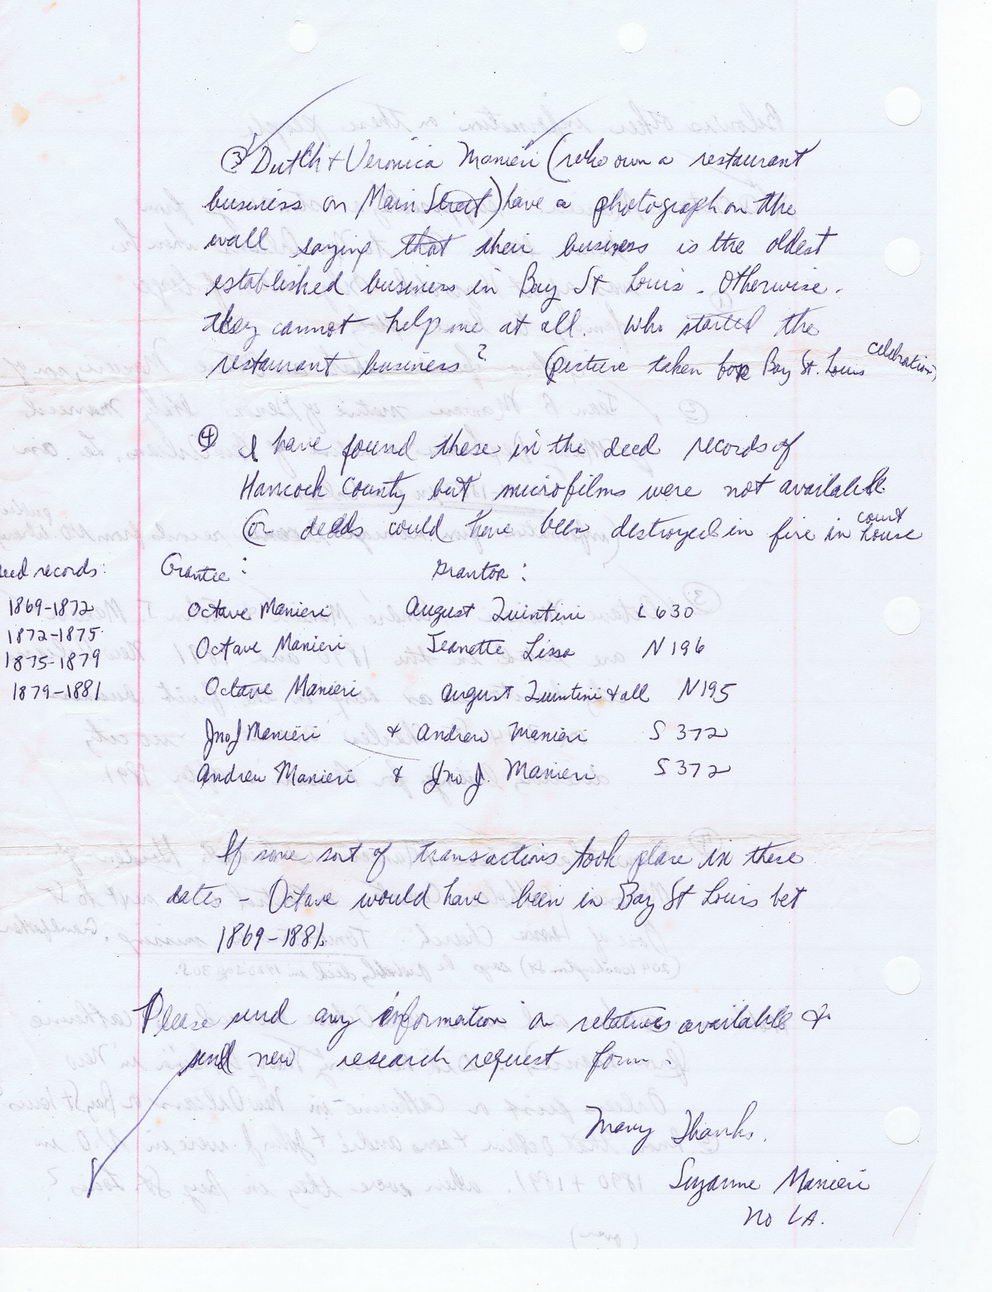 ③ Dutch + Veronica Manieri (who own a restaurant
business on Main Street) have a photograph on the
wall saying that their business is the oldest
established business in Bay St Louis. Otherwise.
they cannot help me at all. Who started the
restaurant business? (picture taken for Bay St. Louis celebration)
④ I have found these in the deed records of
Hancock County but microfilms were not available
(or deeds could have been destroyed in fire in court house
deed records: Grantie: Grantor:
1869-1872 Octave Manieri August Quintini L 630
1872-1875 Octave Manieri Jeanette Lissa N 196
1875-1879
1879-1881 Octave Manieri August Quintini & all N195
Jno J Manieri & Andrew Manieri S 372
Andrew Manieri & Jno J. Manieri S 372
If some sort of transactions took place in these
dates - Octave would have been in Bay St Louis bet
1869-1881.
Please send any information on relatives available &
send new research request form.
Many Thanks.
Suzanne Manieri
NO LA.